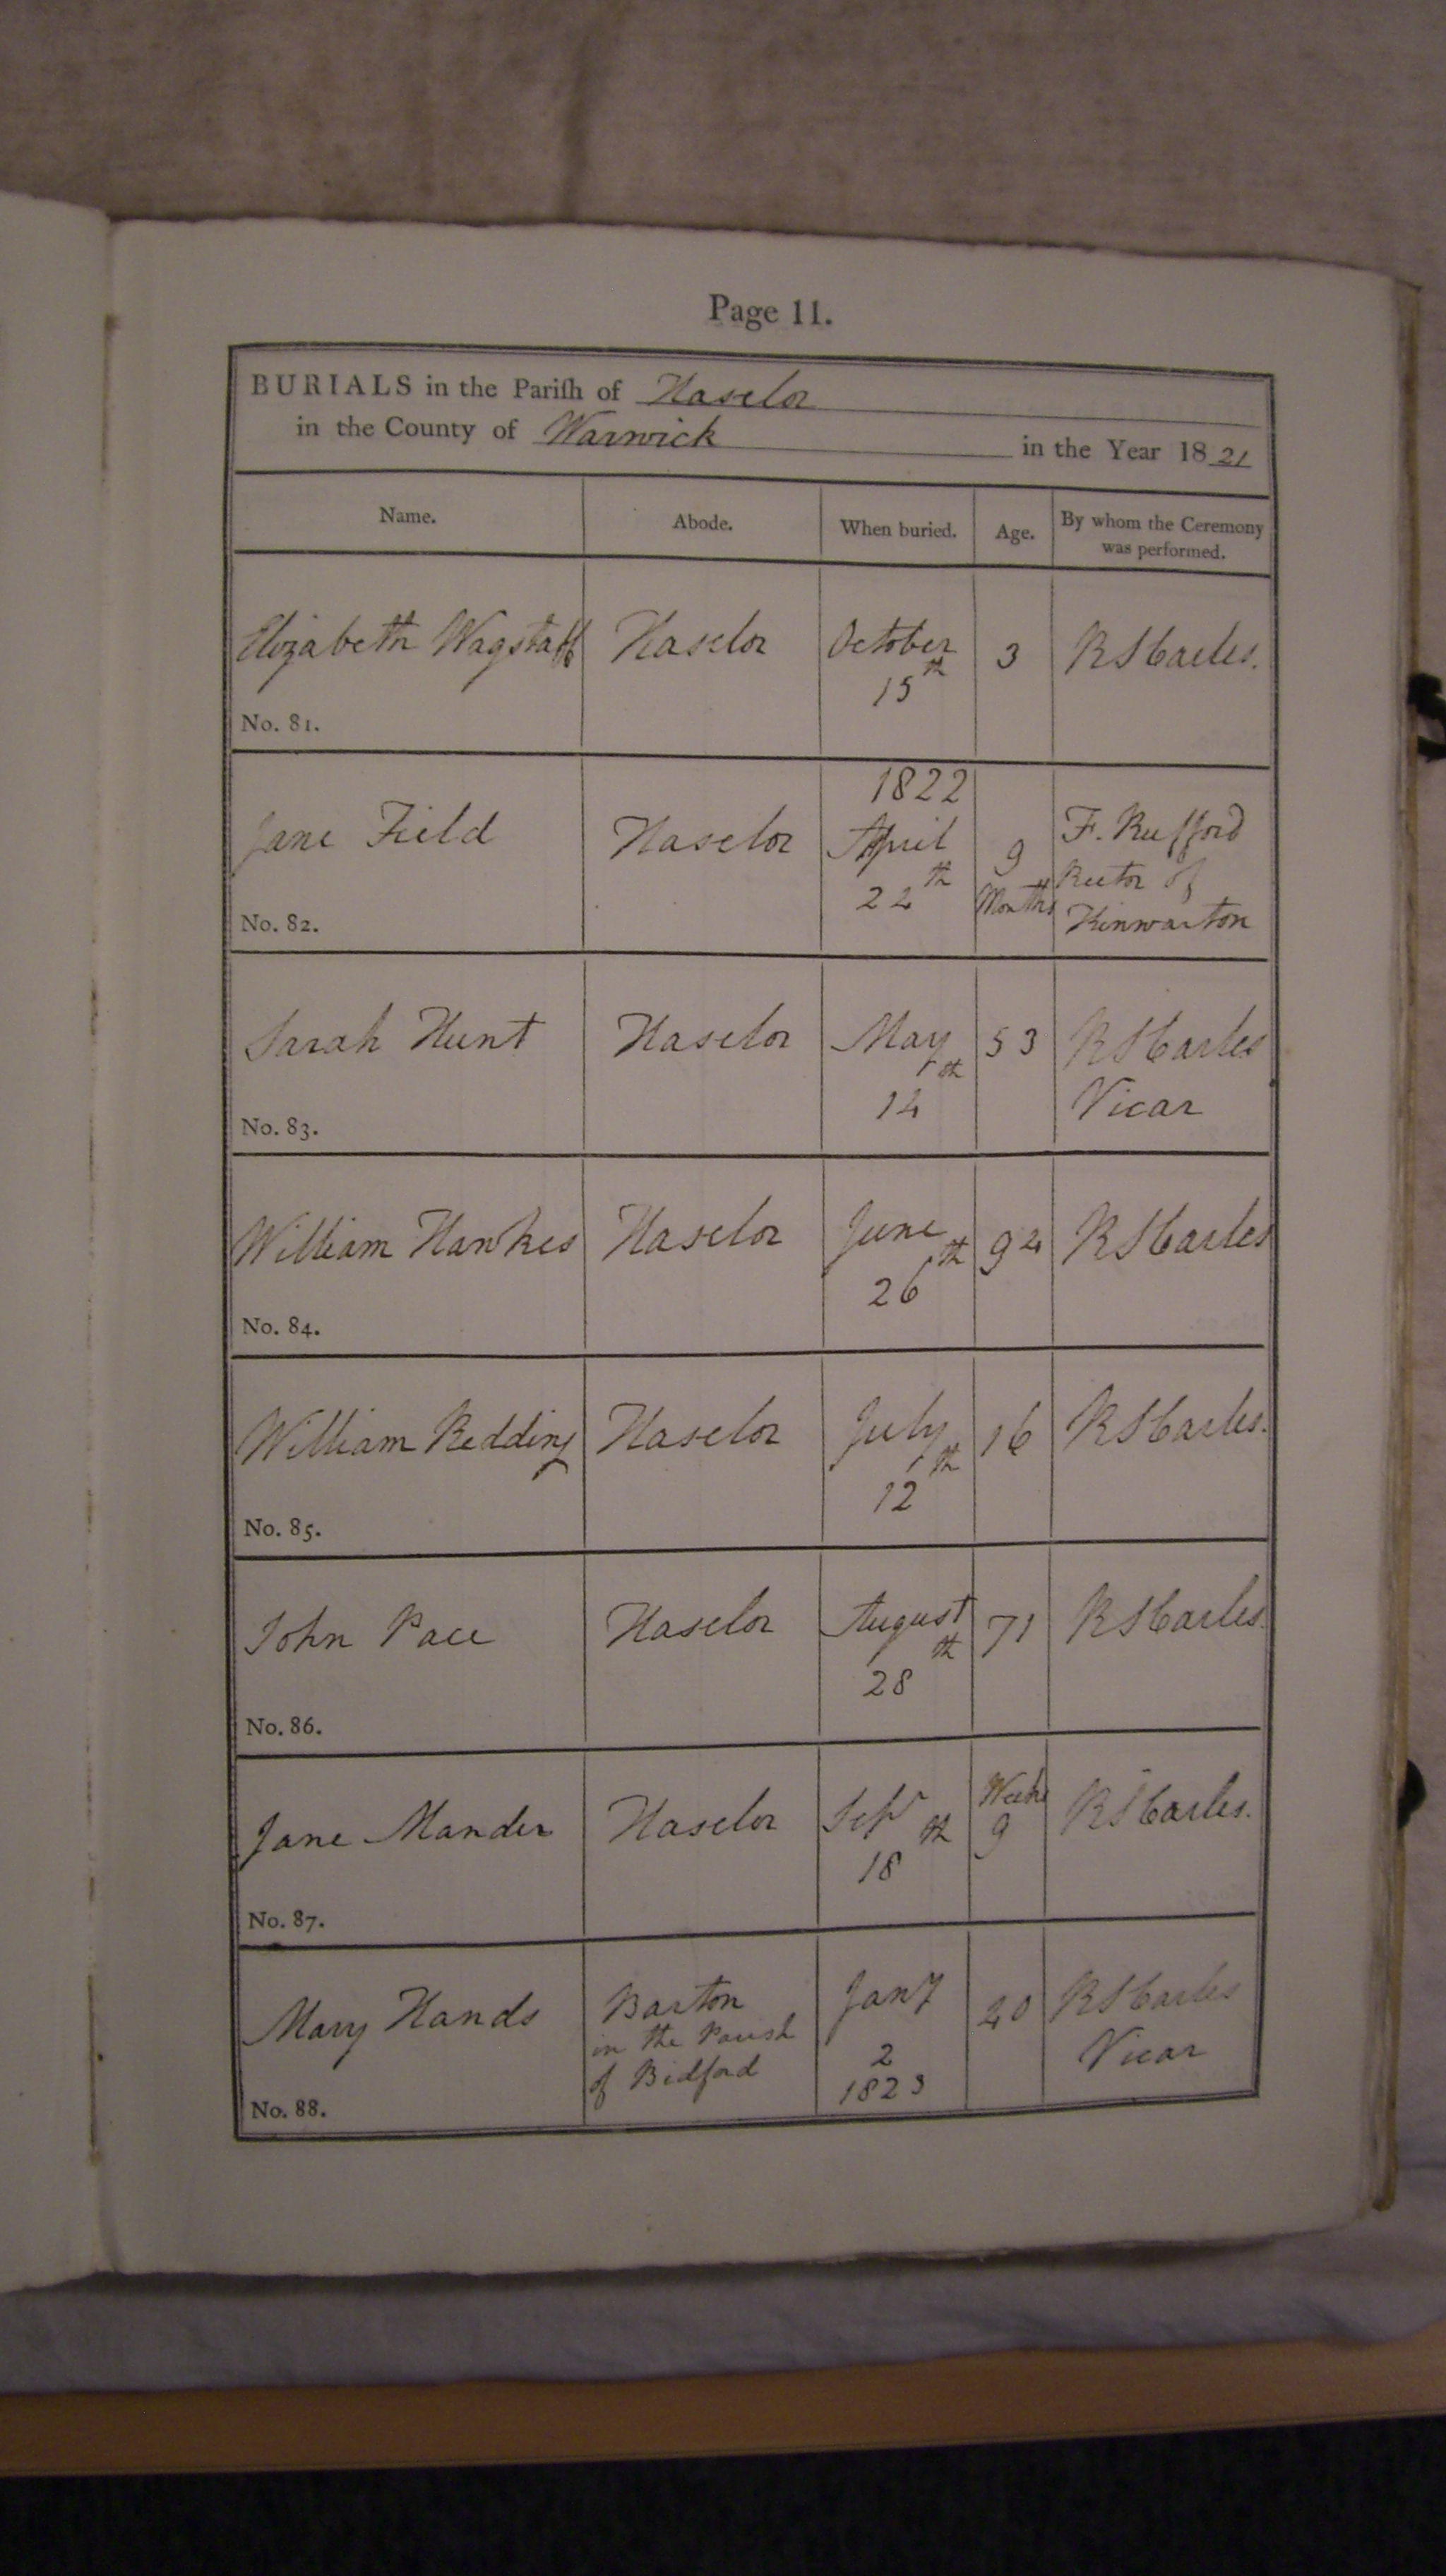 Page 11.
BURIALS in the Pariſh of Haselor
in the County of Warwick in the Year 18 21
Name. Abode. When buried. Age. By whom the Ceremony was performed.
Elizabeth Wagstaff Haselor October 15th 3 R S Carles.
No. 81.
1822
Jane Field Haselor April 22th 9 Months F. Rufford Rector of Kinwarton
No. 82.
Sarah Hunt Haselor May 14th 53 R S Carles Vicar
No. 83.
William Hawkes Haselor June 26th 94 R S Carles
No. 84.
William Redding Haselor July 12th 16 R S Carles.
No. 85.
John Pace Haselor August 28th 71 R S Carles.
No. 86.
Jane Mander Haselor Sepr 18th Weeks 9 R S Carles.
No. 87.
Mary Hands Barton in the Parish of Bidford Jany 2 1823 40 R S Carles Vicar
No. 88.